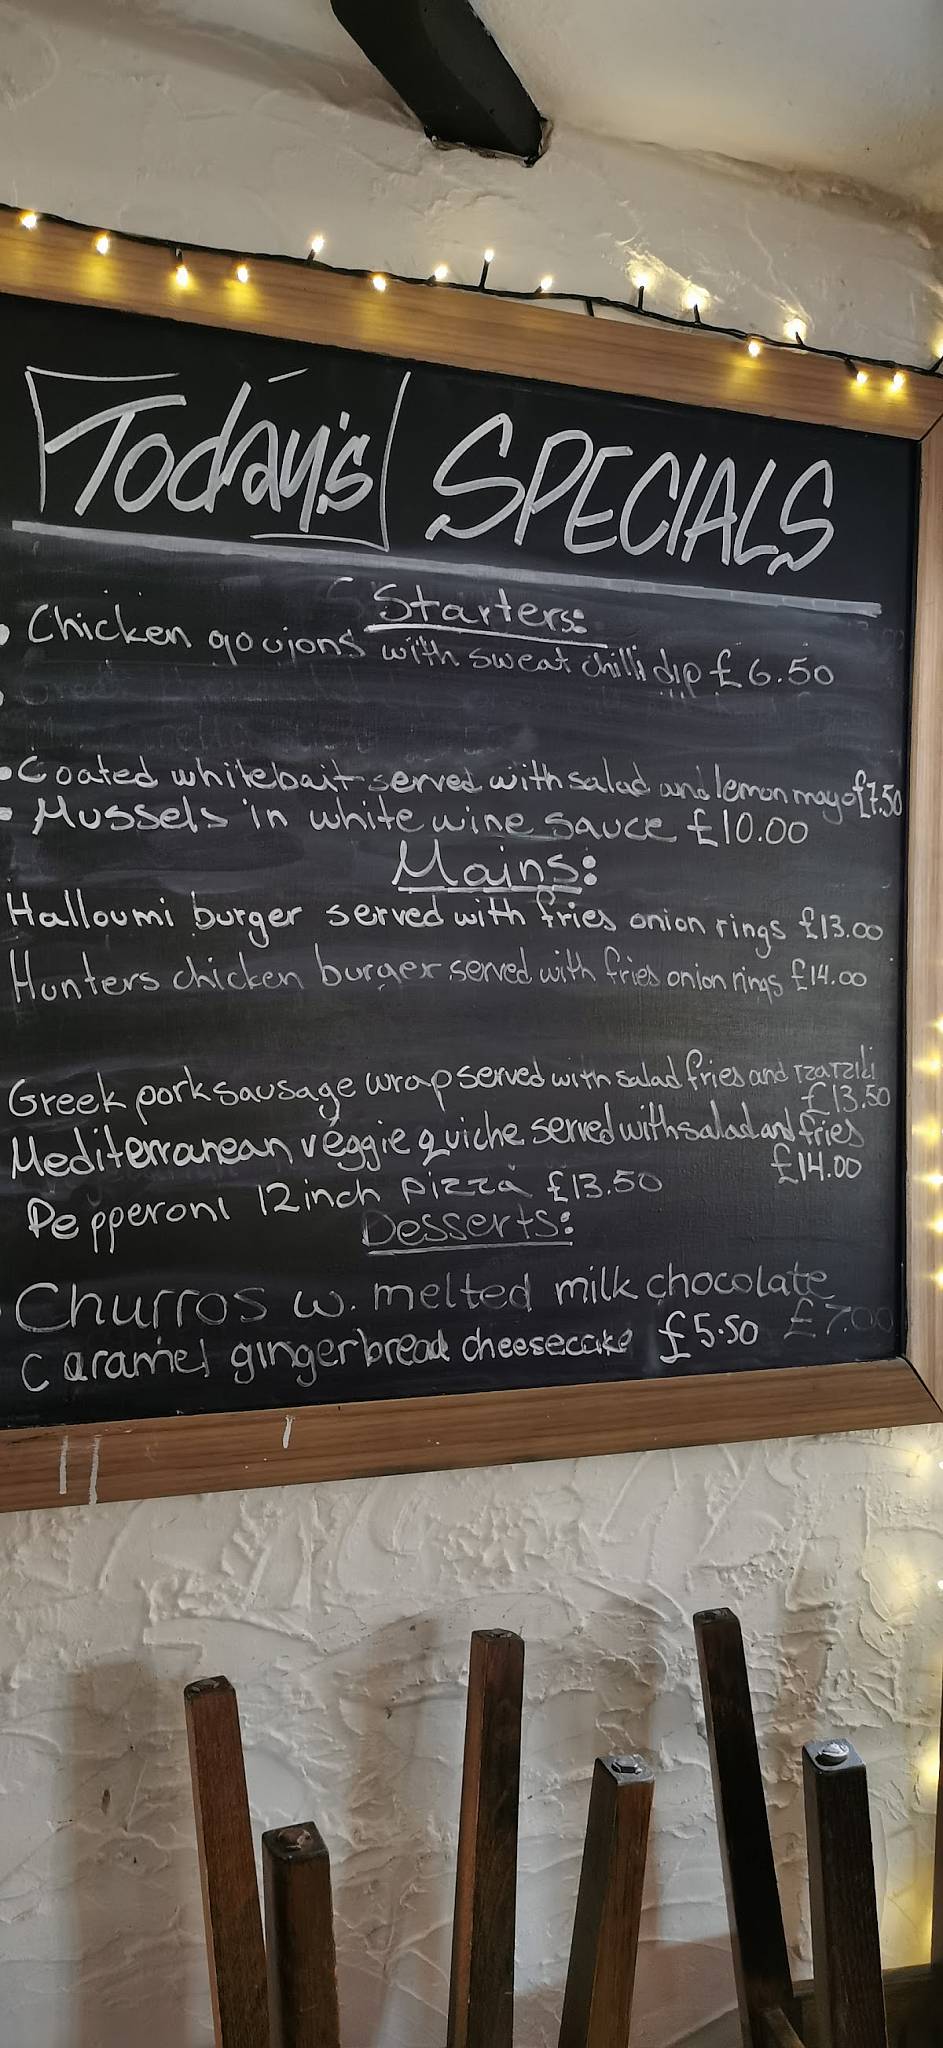 Today's SPECIALS
Starters:
• Chicken goujons with sweat chilli dip £6.50
• Coated whitebait served with salad and lemon mayo £7.50
• Mussels in white wine sauce £10.00
Mains:
Halloumi burger served with fries onion rings £13.00
Hunters chicken burger served with fries onion rings £14.00
Greek pork sausage wrap served with salad fries and tzatziki
£13.50
Mediterranean veggie quiche served with salad and fries
£14.00
Pepperoni 12inch pizza £13.50
Desserts:
Churros w. melted milk chocolate
£7.00
Caramel gingerbread cheesecake £5.50